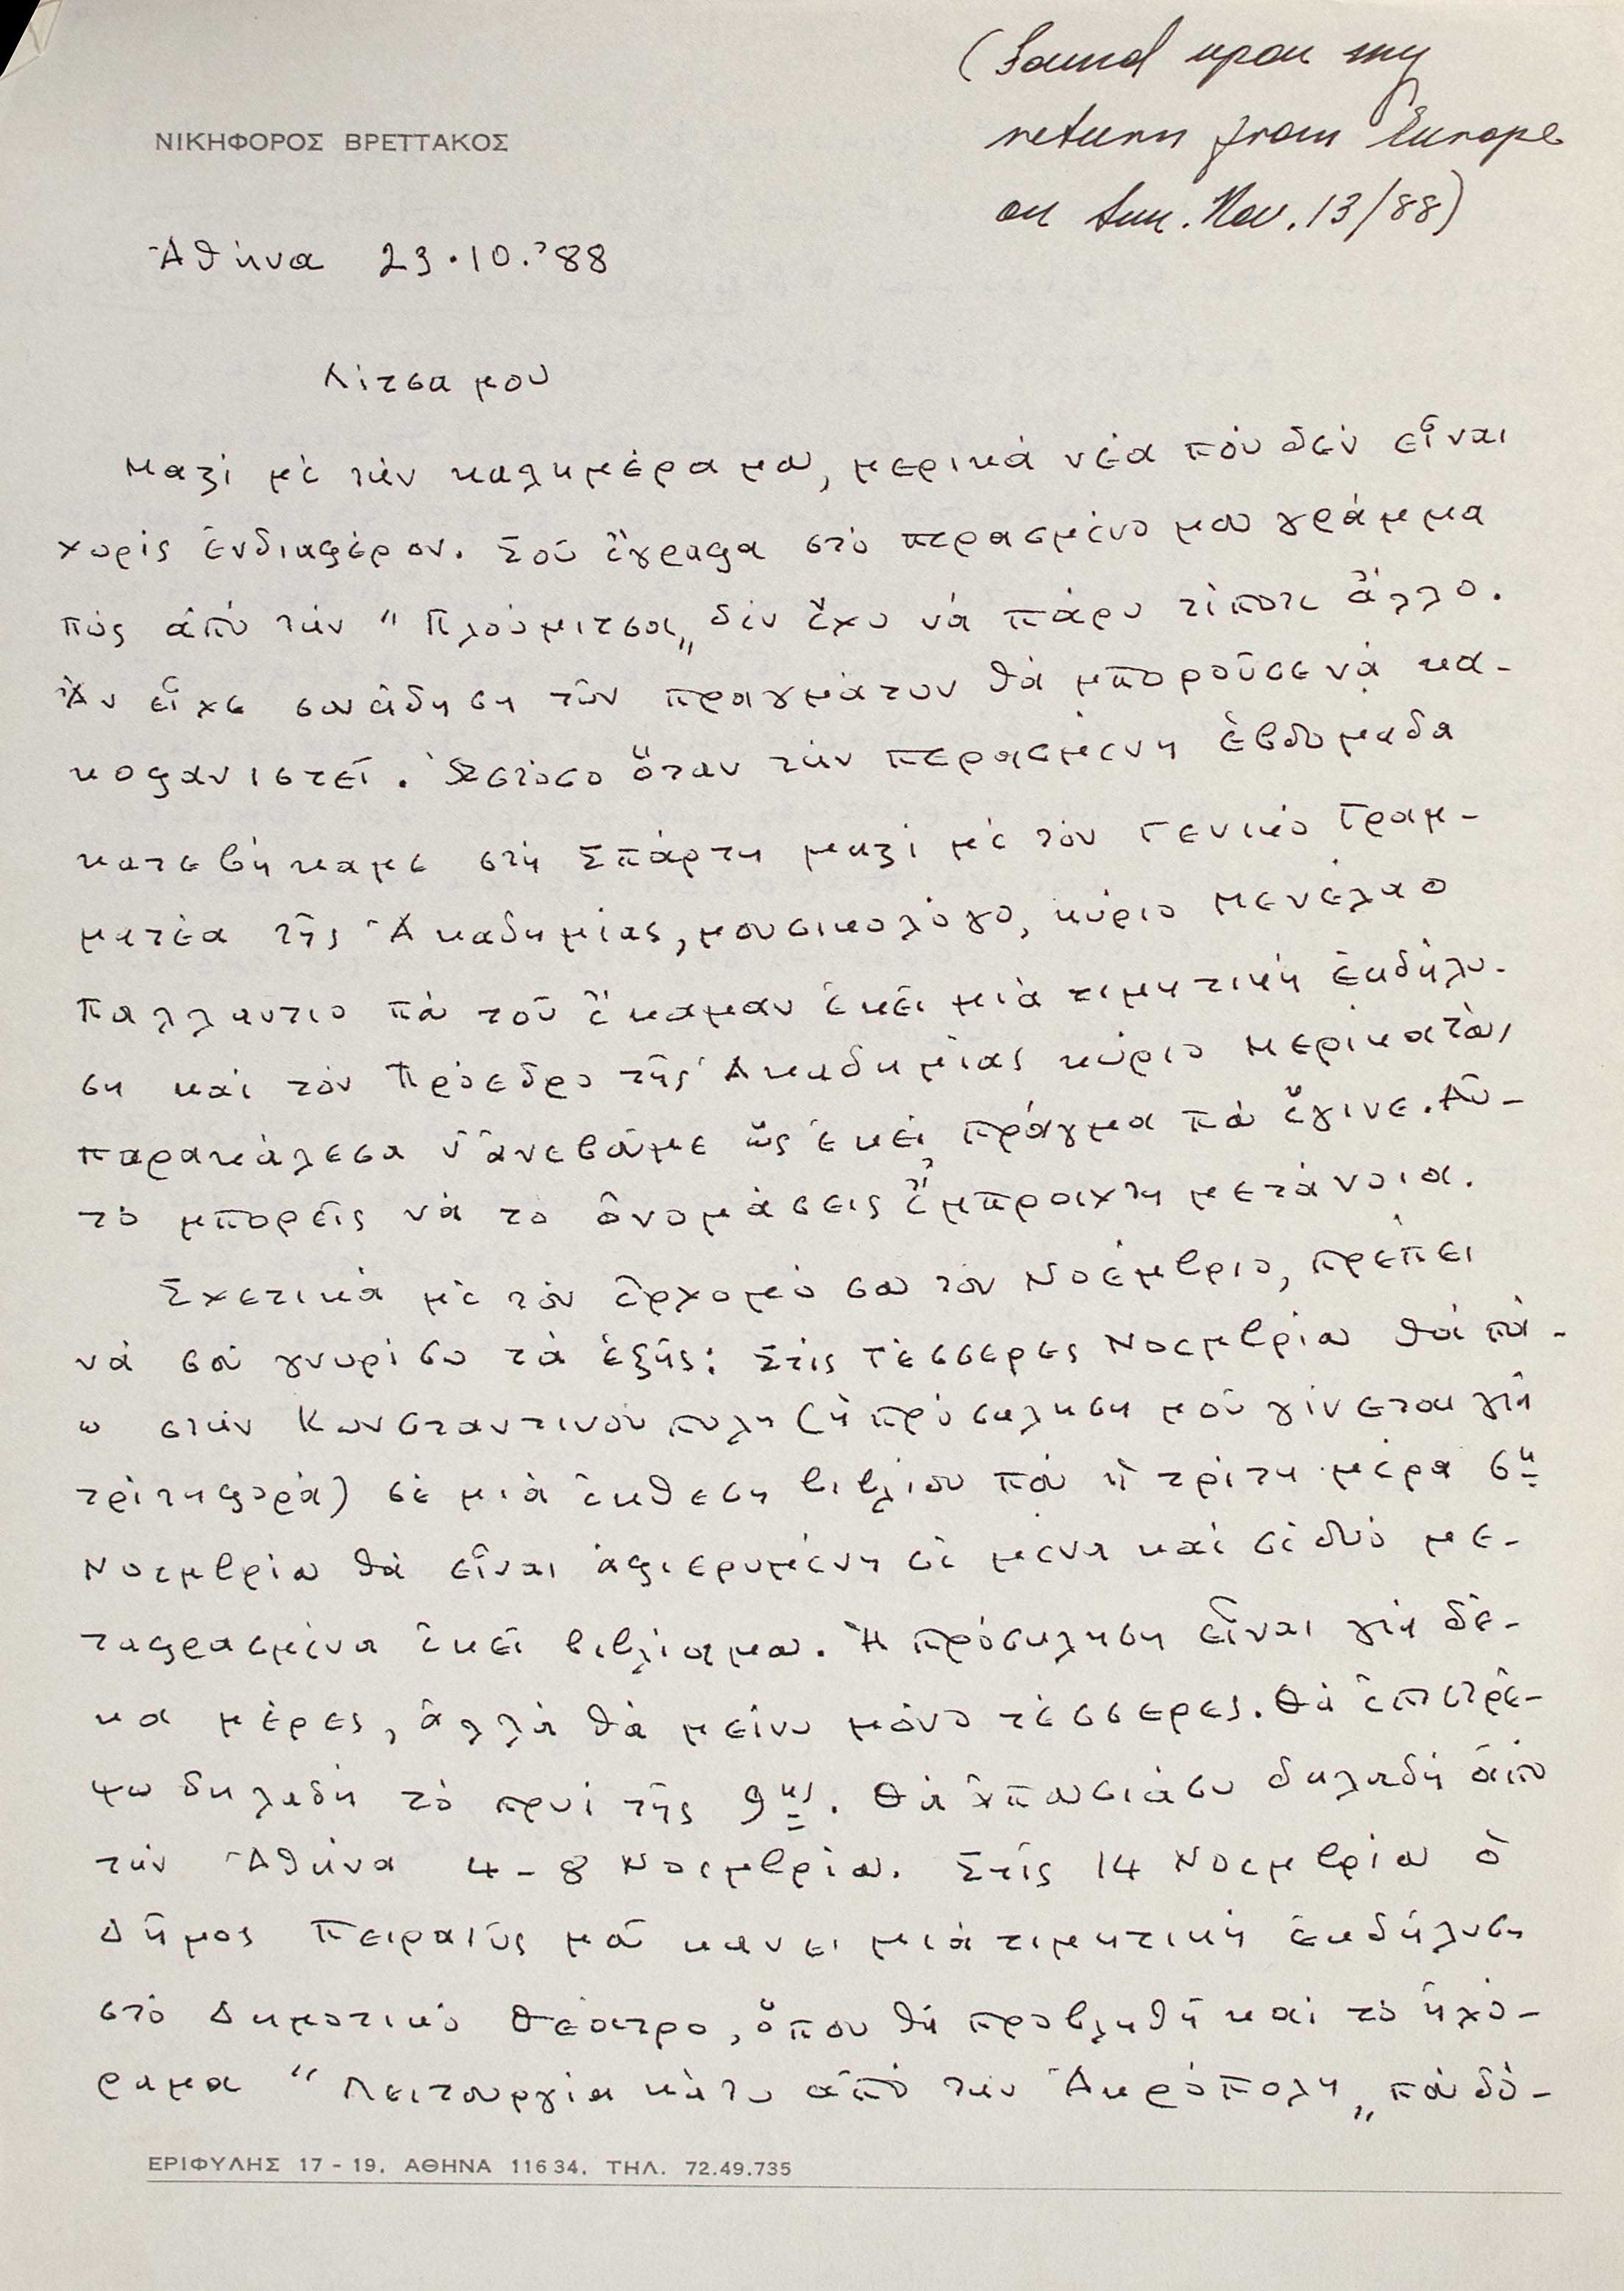 (Found upon my
return from Europe
on Sun. Nov. 13/88)
ΝΙΚΗΦΟΡΟΣ ΒΡΕΤΤΑΚΟΣ
Ἀθήνα 23.10.'88
Λίτσα μου
Μαζί μέ τήν καλημέρα μου, μερικά νέα πού δέν εἶναι
χωρίς ἐνδιαφέρον. Σοῦ ἔγραφα στό περασμένο μου γράμμα
πώς ἀπό τήν "Πλούμιτσα„ δέν ἔχω νά πάρω τίποτε ἄλλο.
Ἄν εἶχε συνείδηση τῶν πραγμάτων θά μποροῦσε νά κα-
κοφανιστεῖ. Ὡστόσο ὅταν τήν περασμένη ἑβδομάδα
κατεβήκαμε στή Σπάρτη μαζί μέ τόν Γενικό Γραμ-
ματέα τῆς Ἀκαδημίας, μουσικολόγο, κύριο Μενέλαο
Παλλάντιο πού τοῦ ἔκαμαν ἐκεῖ μιά τιμητική ἐκδήλω-
ση καί τόν Πρόεδρο τῆς Ἀκαδημίας κύριο Μερίκα τούς
παρακάλεσα ν' ἀνεβοῦμε ὥς ἐκεῖ, πράγμα πού ἔγινε. Αὐ-
τό μπορεῖς νά το ὀνομάσεις ἔμπραχτη μετάνοια.
Σχετικά μέ τόν ἐρχομό σου τόν Νοέμβριο, πρέπει
νά σοῦ γνωρίσω τά ἑξῆς: Στίς τέσσερες Νοεμβρίου θά πά-
ω στήν Κωνσταντινούπολη (ἡ πρόσκληση μοῦ γίνεται γιά
τρίτη φορά) σέ μιά ἔκθεση βιβλίου πού ἡ τρίτη μέρα 6η
Νοεμβρίου θά εἶναι ἀφιερωμένη σέ μένα καί σέ δυό με-
ταφρασμένα ἐκεῖ βιβλία μου. Ἡ πρόσκληση εἶναι γιά δέ-
κα μέρες, ἀλλά θά μείνω μόνο τέσσερες. Θά ἐπιστρέ-
ψω δηλαδή τό πρωί τῆς 9ης. Θά ἀπουσιάσω δηλαδή ἀπό
τήν Ἀθήνα 4-8 Νοεμβρίου. Στίς 14 Νοεμβρίου ὁ
Δῆμος Πειραιῶς μοῦ κάνει μιά τιμητική ἐκδήλωση
στό Δημοτικό Θέατρο, ὅπου θά προβληθῆ καί τό ἠχό-
ραμα "Λειτουργία κάτω ἀπό τήν Ἀκρόπολη„ πού δό-
ΕΡΙΦΥΛΗΣ 17 - 19. ΑΘΗΝΑ 116 34. ΤΗΛ. 72.49.735